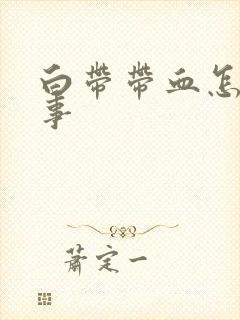 白带带血怎
事
萧定一